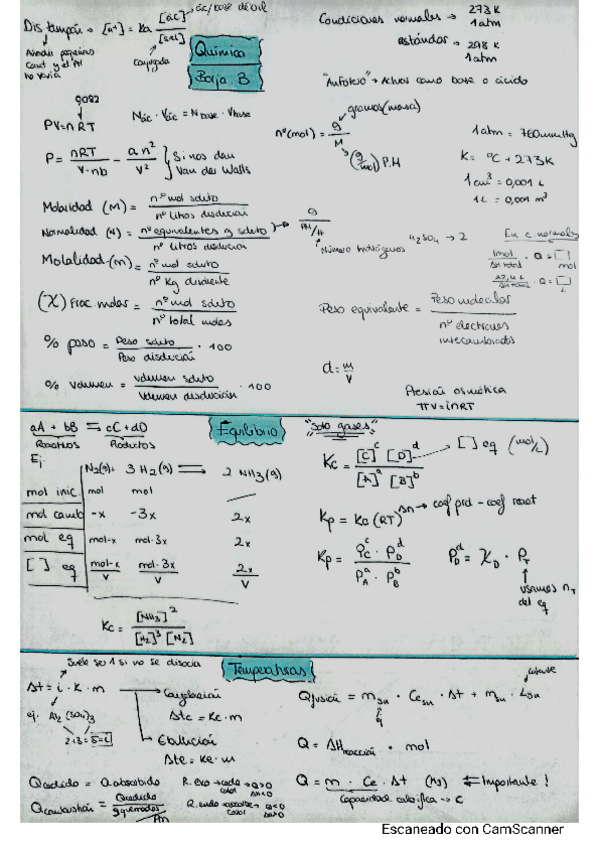 Dis. tampón → [H+] = Ka [ác] / [sal]
→ ác/base débil
conjugada
Añadir pequeñas
cant y el PH
no varía
Química
Borja. B
Condiciones normales → 273 K
1 atm
estándar → 298 K
1 atm
"Anfótero" → Actúa como base o ácido
0'082
PV = nRT
Nác · Vác = Nbase · Vbase
nº(mol) = g / M
→ gramos (masa)
(g/mol) P.M
1 atm = 760 mmHg
P = nRT / V-nb - an² / V² } Si nos dan Van der Walls
K = ºC + 273K
1 cm³ = 0,001 L
1L = 0,001 m³
Molaridad (M) = nº mol soluto / nº litros disolución
Normalidad (N) = nº equivalentes g soluto / nº litros disolución
→ g / PM/H
Número hidrógenos
H2SO4 → 2
En c. normales
1mol · Q = [ ] mol
· Q = [ ] L
Molalidad (m) = nº mol soluto / nº Kg disolvente
(X) Frac molar = nº mol soluto / nº total moles
Peso equivalente = Peso molecular / nº electrones intercambiados
% peso = Peso soluto / Peso disolución · 100
d = m / V
% volumen = volumen soluto / volumen disolución · 100
Presión osmótica
πV = inRT
aA + bB ⇆ cC + dD
Reactivos Productos
Equilibrio
"solo gases"
Ej
N2(g) + 3 H2(g) ⇌ 2 NH3(g)
mol inic mol mol
mol camb -x -3x 2x
mol eq mol-x mol-3x 2x
[ ] eq mol-x / V mol-3x / V 2x / V
Kc = [NH3]² / [H2]³ [N2]
Kc = [C]^c [D]^d / [A]^a [B]^b → [ ] eq (mol/L)
Kp = Kc (RT)^Δn → coef prd - coef react
Kp = P_C^c · P_D^d / P_A^a · P_B^b
P_D^d = X_D · P_T
usamos nT
del eq
Temperaturas
Suele ser 1 si no se disocia
Δt = i · K · m
→ Congelación
Δtc = Kc · m
→ Ebullición
Δte = Ke · m
ej. Al2(SO4)3
2+3 = 5 = i
Qfusión = m · Ce · Δt + m · L
Q = ΔHreacción · mol
Q cedido = Q absorbido
R. exo → cede calor → Q>0
ΔH<0
R. endo → absorbe calor → Q<0
ΔH>0
Q combustión = Q cedido / g quemados
Q = m · Ce · Δt (Kg) ⇐ Importante!
Capacidad calorífica → C
Escaneado con CamScanner